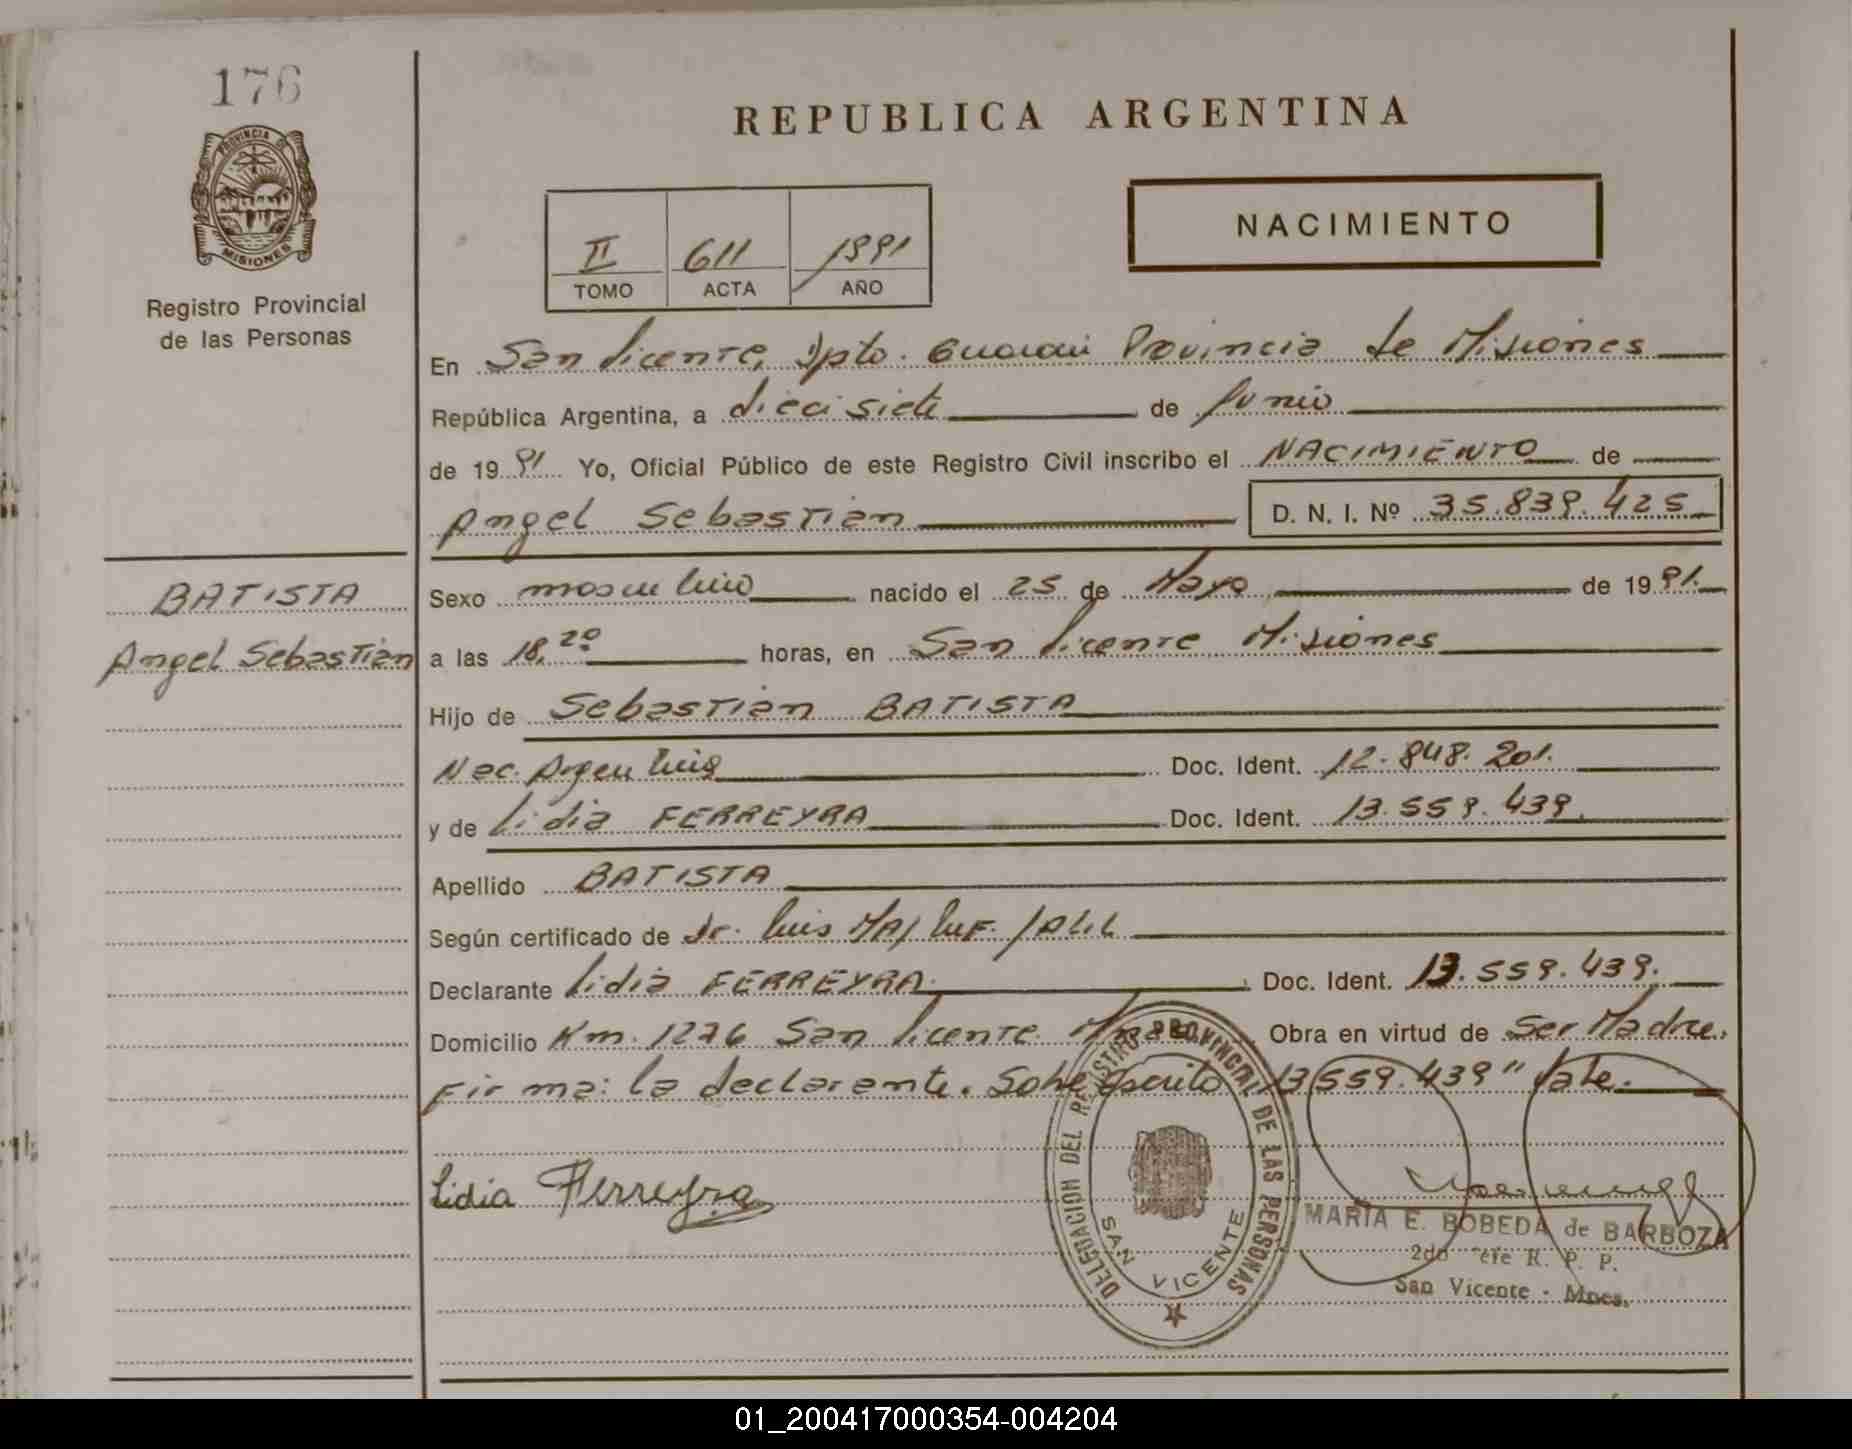 176
PROVINCIA DE
MISIONES
Registro Provincial
de las Personas
BATISTA
Angel Sebastián
REPUBLICA ARGENTINA
NACIMIENTO
II 611 1991
TOMO ACTA AÑO
En San Vicente, Dpto. Guarani Provincia de Misiones
República Argentina, a dieci siete de Junio
de 1991 Yo, Oficial Público de este Registro Civil inscribo el NACIMIENTO de
Angel Sebastián D. N. I. Nº 35.839.425
Sexo masculino nacido el 25 de Mayo de 1991.
a las 18,20 horas, en San Vicente Misiones
Hijo de Sebastián BATISTA
Nac. Argentina Doc. Ident. 12.848.201.
y de Lidia FERREYRA Doc. Ident. 13.559.439.
Apellido BATISTA
Según certificado de Dr. Luis MAJLUF. JALIL
Declarante Lidia FERREYRA. Doc. Ident. 13.559.439.
Domicilio Km. 1276 San Vicente. Mnes. Obra en virtud de Ser Madre.
Firma: la declarante. Sobre escrito 13559.439" Vale.
Lidia Ferreyra
DELEGACION DEL REGISTRO PROVINCIAL DE LAS PERSONAS
SAN VICENTE
MARIA E. BOBEDA de BARBOZA
2do R. P. P.
San Vicente - Mnes.
01_200417000354-004204